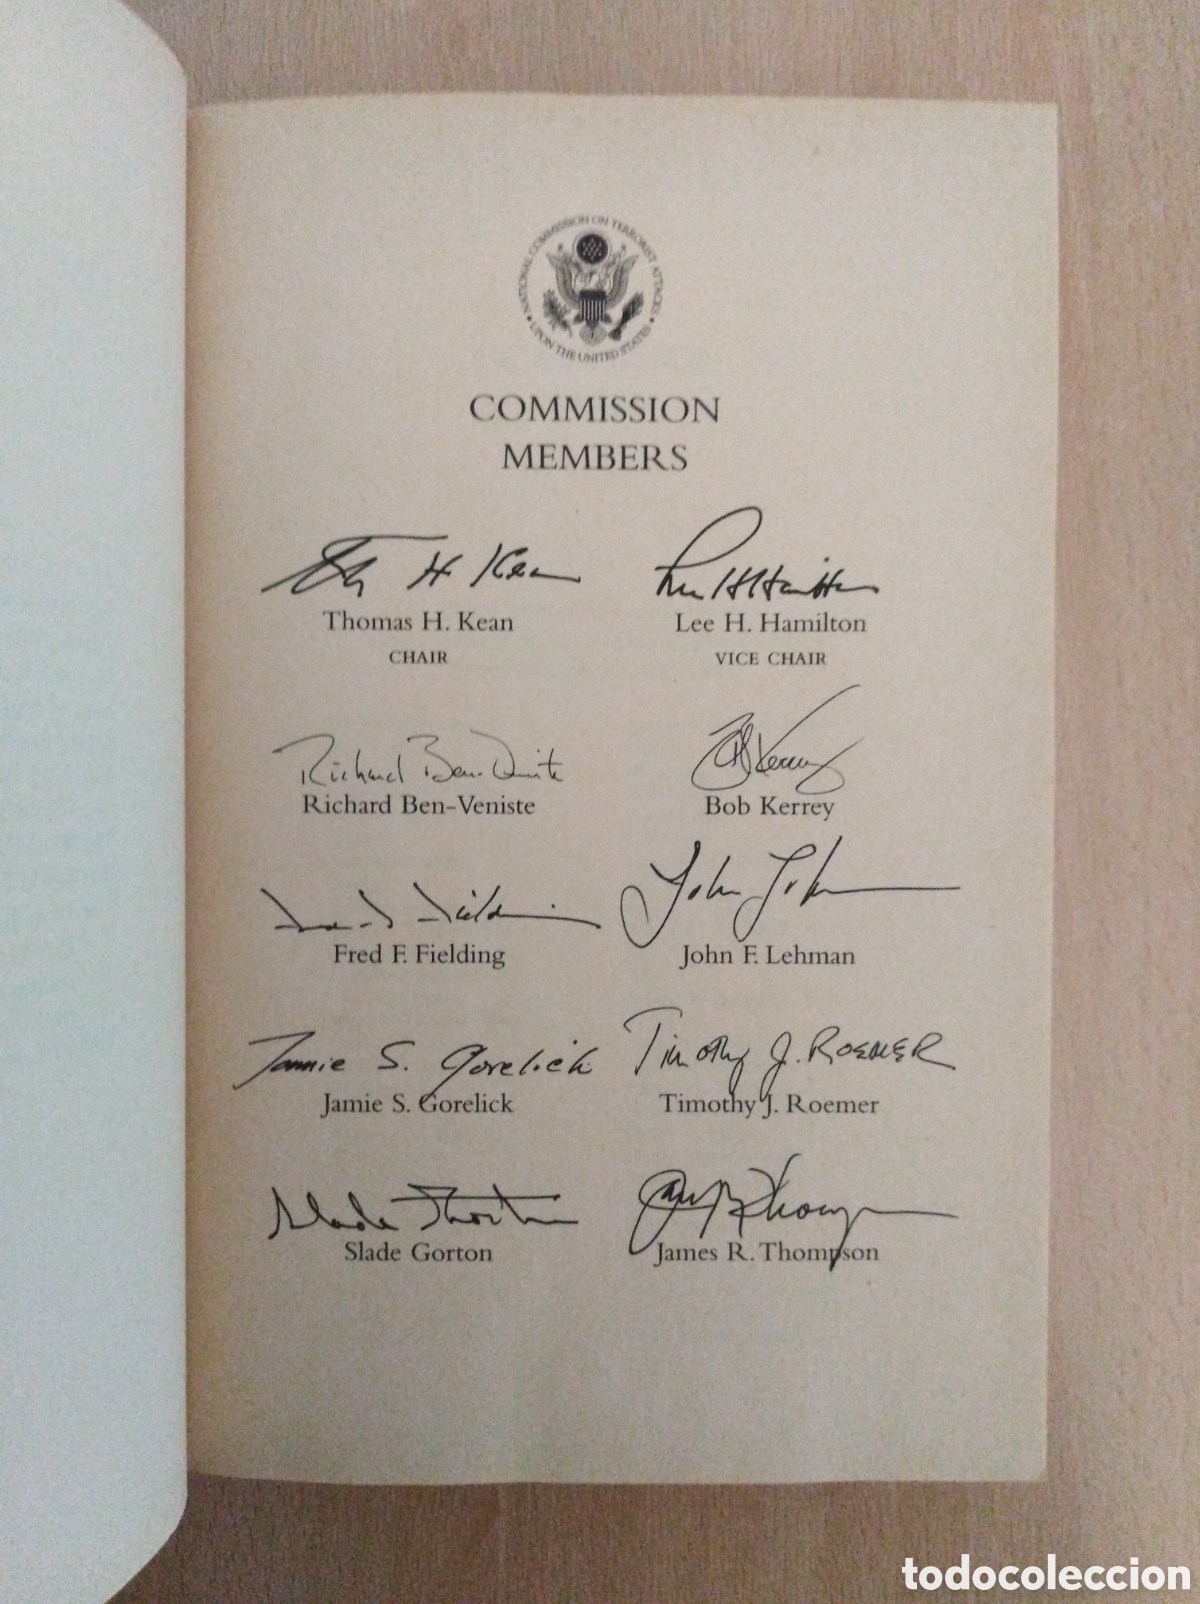 NATIONAL COMMISSION ON TERRORIST ATTACKS
UPON THE UNITED STATES
COMMISSION
MEMBERS
Thomas H. Kean
CHAIR
Lee H. Hamilton
VICE CHAIR
Richard Ben-Veniste
Richard Ben-Veniste
Bob Kerrey
Bob Kerrey
Fred F. Fielding
John Lehman
John F. Lehman
Jamie S. Gorelick
Jamie S. Gorelick
Timothy J. ROEMER
Timothy J. Roemer
Slade Gorton
Slade Gorton
James R. Thompson
todocoleccion